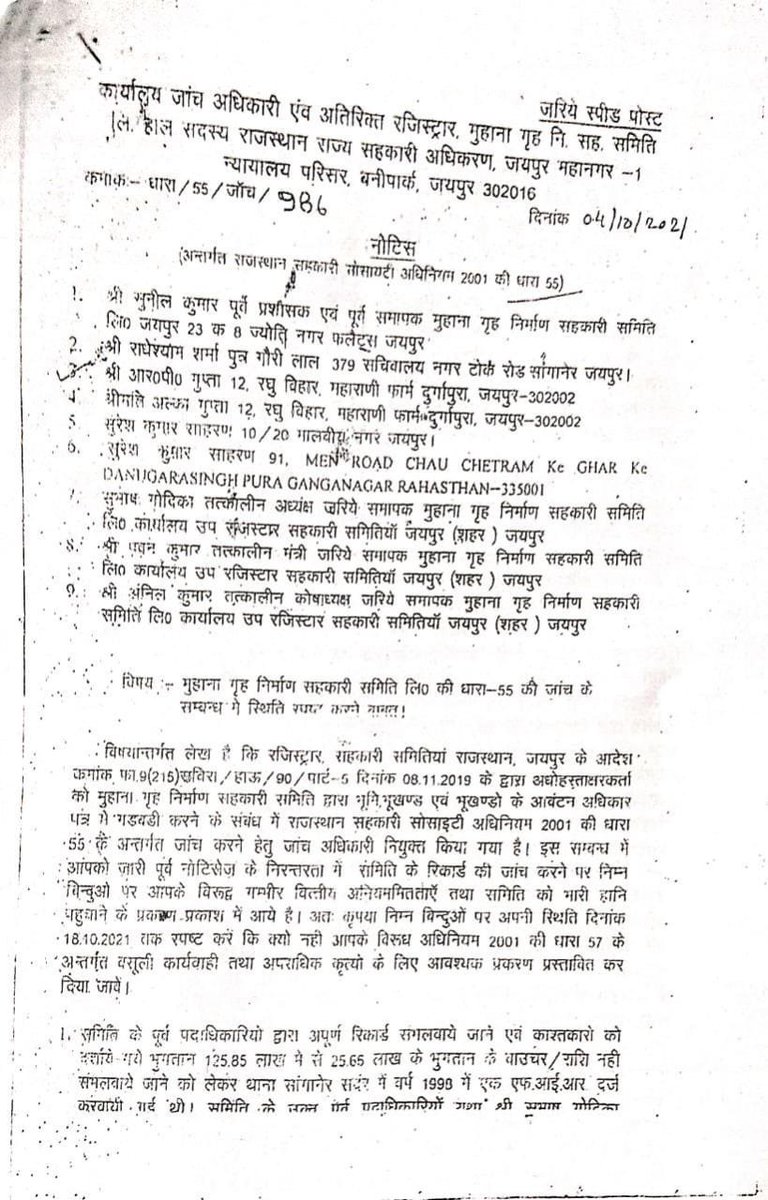 जरिये स्पीड पोस्ट
कार्यालय जांच अधिकारी एंव अतिरिक्त रजिस्ट्रार, मुहाना गृह नि. सह. समिति
लि. हाल सदस्य राजस्थान राज्य सहकारी अधिकरण, जयपुर महानगर -1
न्यायालय परिसर, बनीपार्क, जयपुर 302016
कमाक:- धारा/55/जॉच/ 986
दिनांक 04/10/2021
नोटिस
(अन्तर्गत राजस्थान सहकारी सोसायटी अधिनिगम 2001 की धारा 55)
1. श्री सुनील कुमार पूर्त प्रशासक एवं पूर्व समापक मुहाना गृह निर्माण सहकारी समिति
लि0 जयपुर 23 क 8 ज्योति नगर फलैट्स जयपुर
2. श्री राधेश्याम शर्मा पुत्र गौरी लाल 379 सचिवालय नगर टोंक रोड सांगानेर जयपुर।
3. श्री आर0पी0 गुप्ता 12, रघु विहार, महाराणी फार्म दुर्गापुरा, जयपुर-302002
4. श्रीमति अल्का गुप्ता 12, रघु विहार, महाराणी फार्म दुर्गापुरा, जयपुर-302002
5. सुरेश कुमार साहरण 10/20 मालवीय नगर जयपुर।
6. सुरेश कुमार साहरण 91, MEN ROAD CHAU CHETRAM Ke GHAR Ke
DANUGARASINGH PURA GANGANAGAR RAHASTHAN-335001
7. सुभाष गोदिका तत्कालीन अध्यक्ष जरिये समापक मुहाना गृह निर्माण सहकारी समिति
लि0 कार्यालय उप रजिस्टार सहकारी समितियॉ जयपुर (शहर ) जयपुर
8. श्री पवन कुमार तत्कालीन मंत्री जरिये समापक मुहाना गृह निर्माण सहकारी समिति
लि0 कार्यालय उप रजिस्टार सहकारी समितियॉ जयपुर (शहर ) जयपुर
9. श्री अनिल कुमार तत्कालीन कोषाध्यक्ष जरिये समापक मुहाना गृह निर्माण सहकारी
समिति लि0 कार्यालय उप रजिस्टार सहकारी समितियॉ जयपुर (शहर ) जयपुर
विषय :- मुहाना गृह निर्माण सहकारी समिति लि0 की धारा-55 की जांच के
सम्बन्ध मे स्थिति स्पष्ट करने बाबत।
विषयान्तर्गत लेख है कि रजिस्ट्रार, सहकारी समितियां राजस्थान, जयपुर के आदेश
कमांक फा.9(215)सविरा/हाऊ/90/पार्ट-5 दिनांक 08.11.2019 के द्वारा अधोहस्ताक्षरकर्ता
को मुहाना गृह निर्माण सहकारी समिति द्वारा भूमि,भूखण्ड एवं भूखण्डो के आवंटन अधिकार
पत्र में गडबडी करने के संबंध में राजस्थान सहकारी सोसाइटी अधिनियम 2001 की धारा
55 के अन्तर्गत जांच करने हेतु जांच अधिकारी नियुक्त किया गया है। इस सम्बन्ध में
आपको जारी पूर्व नोटिसेज के निरन्तरता में समिति के रिकार्ड की जांच करने पर निम्न
बिन्दुओं पर आपके विरूद्व गम्भीर वित्तीय अनियममितताऐं तथा समिति को भारी हानि
पहुचाने के प्रकरण प्रकाश में आये है। अतः कृपया निम्न बिन्दुओं पर अपनी स्थिति दिनांक
18.10.2021 तक स्पष्ट करें कि क्यो नही आपके विरूध अधिनियम 2001 की धारा 57 के
अन्तर्गत वसूली कार्यवाही तथा अपराधिक कृत्यो के लिए आवश्यक प्रकरण प्रस्तावित कर
दिया जावें।
1. समिति के पूर्व पदाधिकारियो द्वारा अपूर्ण रिकार्ड संगलवाये जाने एवं काश्तकारो को
दर्शाये गये भुगतान 125.85 लाख मे से 25.65 लाख के भुगतान के वाउचर/राशि नही
संभलवाये जाने को लेकर थाना सांगानेर सदर में वर्ष 1998 में एक एफ.आई.आर दर्ज
करवायी गई थी। समिति के उक्त पूर्व पदाधिकारियों यथा श्री सुभाष गोदिका